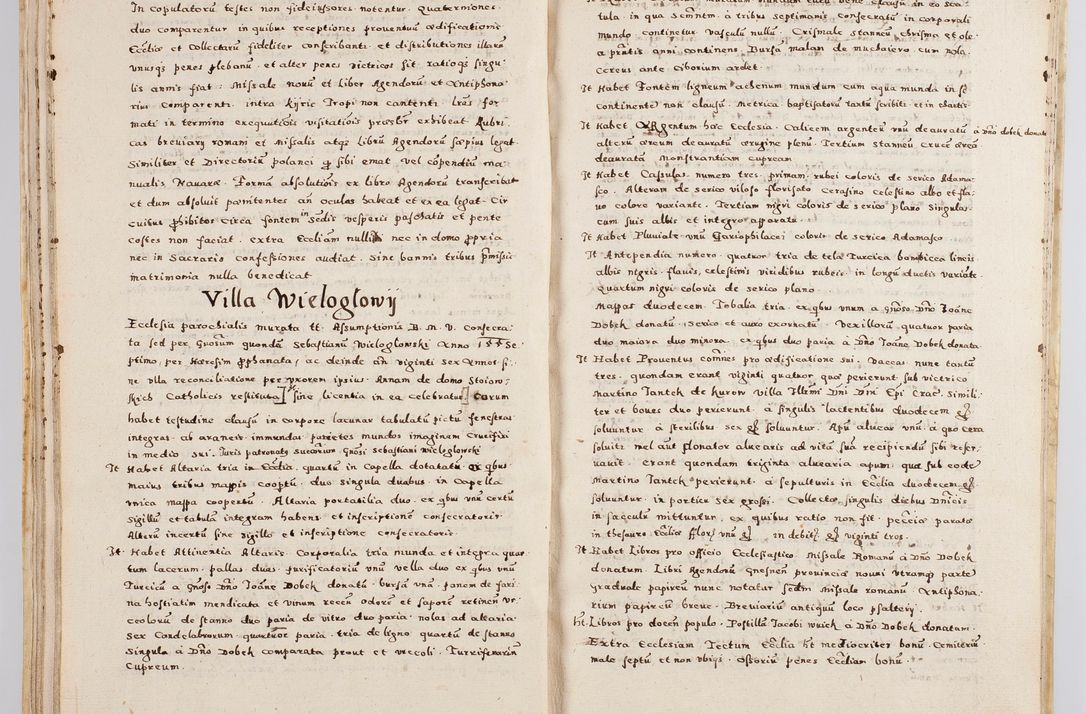 In copulatorū testes non fideiussores notentur. Quaterniones
duo comparentur in quibus receptiones proventuū ædificationis
Eccliæ et Collectarū fideliter conscribantr. et distributiones illarū
unusqs penes plebanū. et alter penes vietricos sit ratioqs singu
lis annis fiat. Missale novū et Liber Agendorū et Antiphona
rius comparentr. intra kijrie Tropi non cantentr. lras for
mati in termino exequutiois visitatiois præsbr exhibeat. Rubri
cas breviarij romani et missalis atqs librū Agendorū sæpius legat.
Similiter et Directoriū polanci sibi emat vel cōpendiū ma
nualis Navaræ. Formā absolutiois ex libro Agendorū transcribat
et dum absolvit pœnitentes añ oculos habeat et ex ea legat. Cir
cuitus phibitos circa fontem in sedis vesperis paschatis et pente
costes non faciat. extra Eccliam nulli nec in domo ppria
nec in Sacrario confessiones audiat. Sine bannis tribus pmissis
matrimonia nulla benedicat
Villa Wielogłowij
Ecclesia parochialis murata tt. Assumptionis B. M. V. consecra
ta sed per Gnosum quondā Sebastianū Wieloglowski Anno 155 Se
ptimo, per Hæresim pphanata, ac deinde añ viginti sex Annos si,
ne ulla reconciliatione per uxorem ipsius Annam de domo Stoiow,
skich Catholicis restituta] sine licentia in ea celebratur] Earum
habet testudine clausū in corpore lacunar tabulatū pictū fenestras
integras ab araneis immundas parietes mundos imaginem Crucifixi
in medio sui. Juris patronatg succorum Gnosi Sebastiani Wieloglowski
It Habet Altaria tria in Ecclia. quartū in Capella dotatū. ex qbus
maius tribus mappis coopertū. duo singula duabus. in Capella
unica mappa coopertū. Altaria portatilia duo. ex qbus unū certū
Sigillū et tabulā integram habens et inscriptionē consecratoris
Alterū incertū sine sigillo et inscriptione consecratoris.
It. Habet Attinentia Altaris. Corporalia tria munda et integra quar
tum lacerum. pallas duas. purificatoriū unū vella duo ex qbus unū
Turcicū a Gnoso Dno Joane Dobek donatū. bursā unā. panem de fari
na hostiatim mendicata et vinum recēn odorē et saporē retinēn ur
ceolorū de stanno duo paria de vitro duo paria. nolas ad altaria.
Sex Candelabrorum quatuor paria. tria de ligno quartū de stanno
Singula a Dno Dobek comparata prout et urceoli. Turriferariū
Cupreum.
tula. in qua semñtm a tribus septimanis consecratū in corporali
mundo continetur. vasculū nullū. Crismale stanneū chrisma et ole
a pñtis anni continens. Bursā malam de muchaiero cum nola.
Cereus ante Ciborium ardet.
It Habet Fontem ligneum ahenum mundum cum aqua munda in se
continente non clausū. Metrica baptisatorū tantū scribitr. et in chartis
It Habet Argentum hæc Ecclesia. Calicem argenteū unū deauratū a Dno Dobek donatū
alterū æreum deauratū ærugine plenū. Tertium stanneū cruce ærea
deaurata monstrantiam cupream
It Habet Casulas numero tres. primam rubei coloris de serico Adama,
sco. Alteram de serico viloso florisato cerasino celestino albo et fla,
vo colore variante. Tertiam nigri coloris de serico plano singulas
cum suis albis et integro apparatu.
It Habet Pluviale unū Gariophilacei coloris de serico Adamasco
It Antependia numero quatuor tria de tela Turcica bombicea lineis
albis nigris flavis, celestinis viridibus rubeis in longū ductis variate.
Quartum nigri coloris de serico plano.
Mappas duodecem. Tobalia tria. ex qbus unum a Gnoso Dno Joane
Dobek donatū serico et auro exornatū. Vexillorū quatuor paria
duo maiora duo minora. ex qbus duo paria a Dno Joane Dobek donata
It Habet Proventus comes pro ædificatione sui. Vaccas nunc tantū
tres. quondam erant viginti quatuor quæ perierunt sub vietrico
Martino Jantek de kurow villa Illmi Dni Dni Epi Crac. Simili
ter et boves duo perierunt. a singulis lactentibus duodecem gr
solvuntur a sterilibus sex gr solvuntur. Apū alvear unū. a quo cera
solvitr mel aut donator alvearis ad vitā suā recipiendū sibi reser,
vavit. Erant quondam triginta alvearia apum quæ sub eodē
Martino Jantek perierunt. a sepulturis in Ecclia duodecem gr
solvuntur. in porticu sex grossi. Collectæ singulis diebus Dnicis
in sacculū mittuntur, ex quibus ratio non fit. pecūia parata
in thesauro Eccliæ fflor unū gr in debitis gr viginti tres.
It Habet Libros pro officio Ecclesiastico. Missale Romanū a Dno Dobek
donatum. Libri Agendorū Gnesnen provinciæ novū utramqs partē
graduale papireū nunc notatur sedm missale romanū. Antiphona,
rium papireū breve. Breviariū antiquū loco psalterij.
It. Libros pro docen populo. Postilla Jacobi wuiek a Dno Dobek donatam.
Extra Ecclesiam Tectum Eccliæ ht mediocriter bonū. Cemiteriū
male septū et non ubiqs. Ossoriū penes Eccliam bonū.